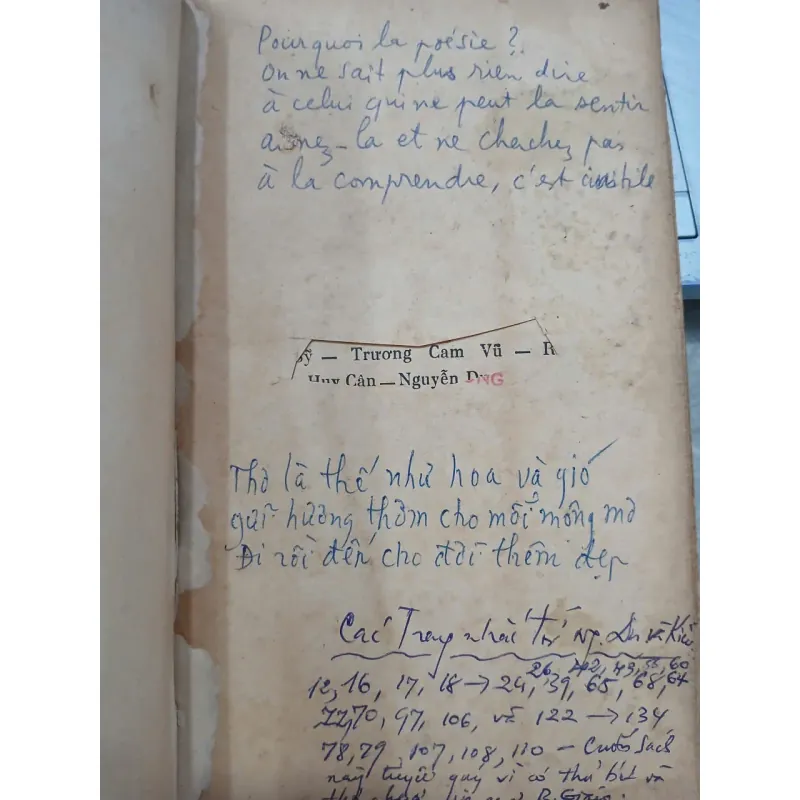 Pourquoi la poésie ?
On ne sait plus rien dire
à celui qui ne peut la sentir
aimez-la et ne cherchez pas
à la comprendre, c'est inutile
— Trương Cam Vũ —
Huy Cân — Nguyễn
NG
Thơ là thế như hoa và gió
gửi hương thơm cho mỗi mộng mơ
Đi rồi đến cho đời thêm đẹp
Các Trang nhắc tới Ng. Du và Kiều
26, 42, 49, 58, 60
12, 16, 17, 18 → 24, 39, 65, 68, 64
70, 97, 106, và 122 → 134
78, 79, 107, 108, 110 — Cuốn sách
này tuyệt quý vì có thủ bút và